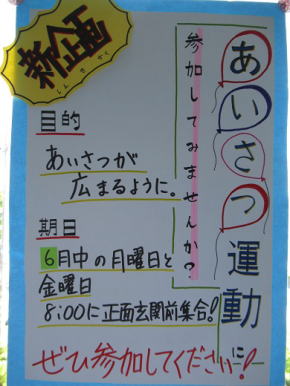 新企画
しんきかく
あいさつ運動に
参加してみませんか?
目的
あいさつが
広まるように。
期日
6月中の月曜日と
金曜日
8:00に正面玄関前集合!
ぜひ参加してください!